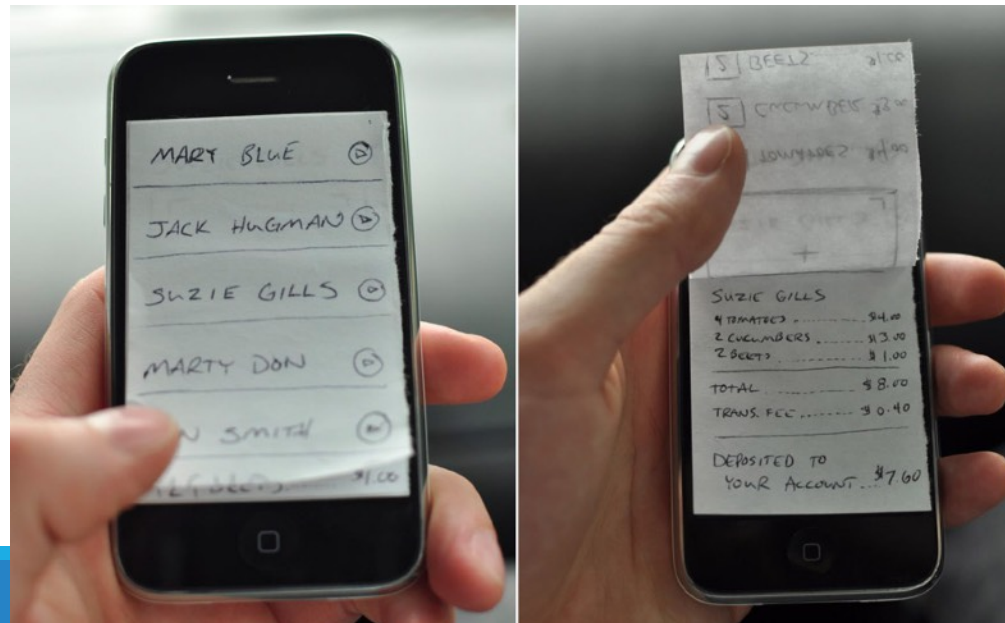 MARY BLUE
JACK HUGMAN
SUZIE GILLS
MARTY DON
SMITH
$1.00
2 BEETS $1.00
2 CUCUMBER $3.00
TOMATOES $4.00
SUZIE GILLS
4 TOMATOES ........ $4.00
2 CUCUMBERS ........ $3.00
2 BEETS ........ $1.00
TOTAL ........ $8.00
TRANS. FEE ........ $0.40
DEPOSITED TO
YOUR ACCOUNT ... $7.60